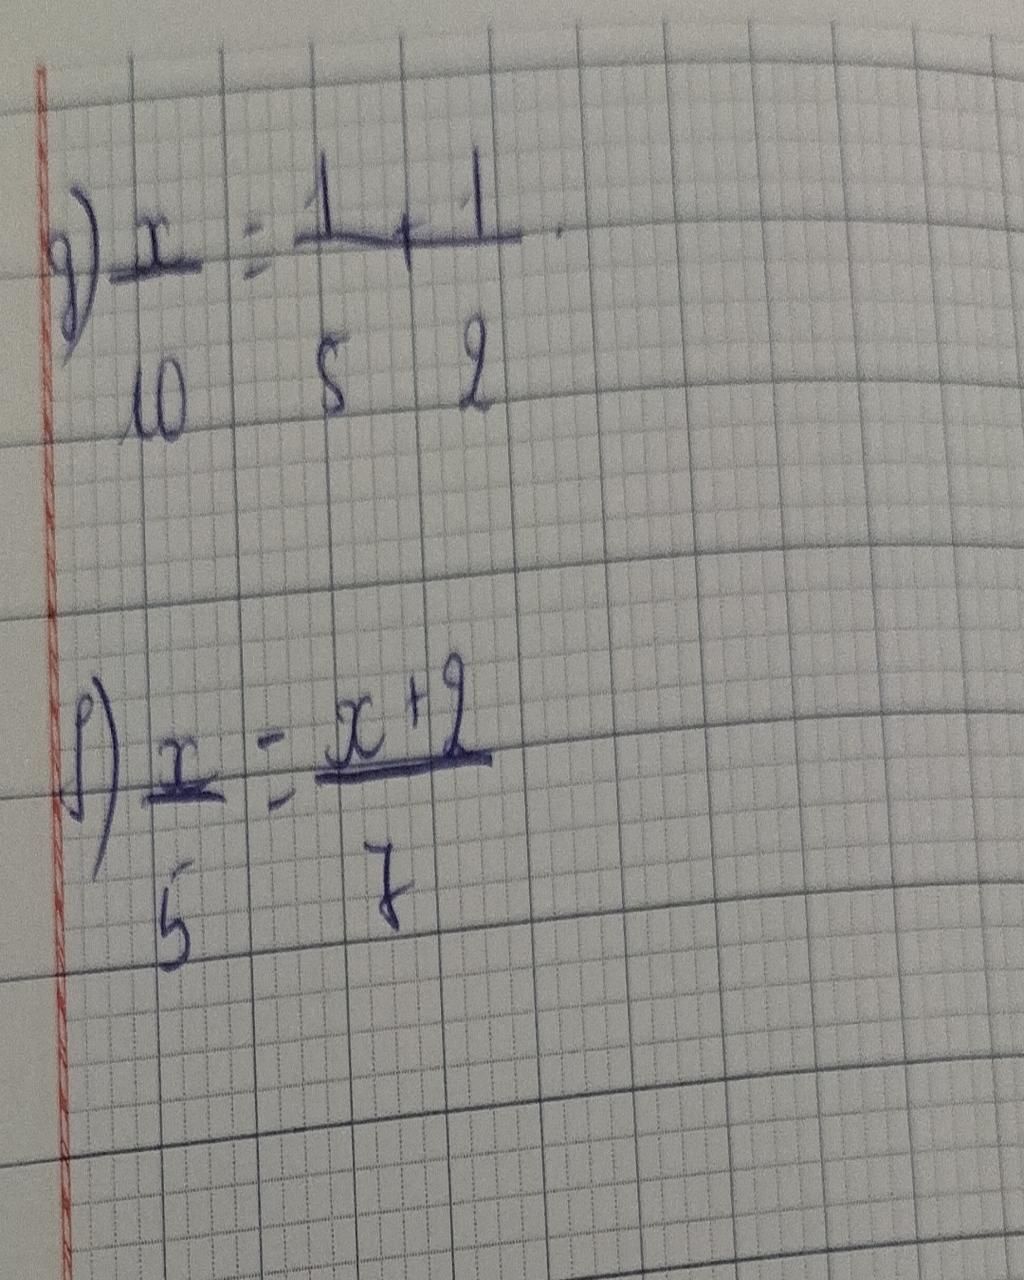 g) x/10 = 1/5 + 1/2
f) x/5 = x+2/7